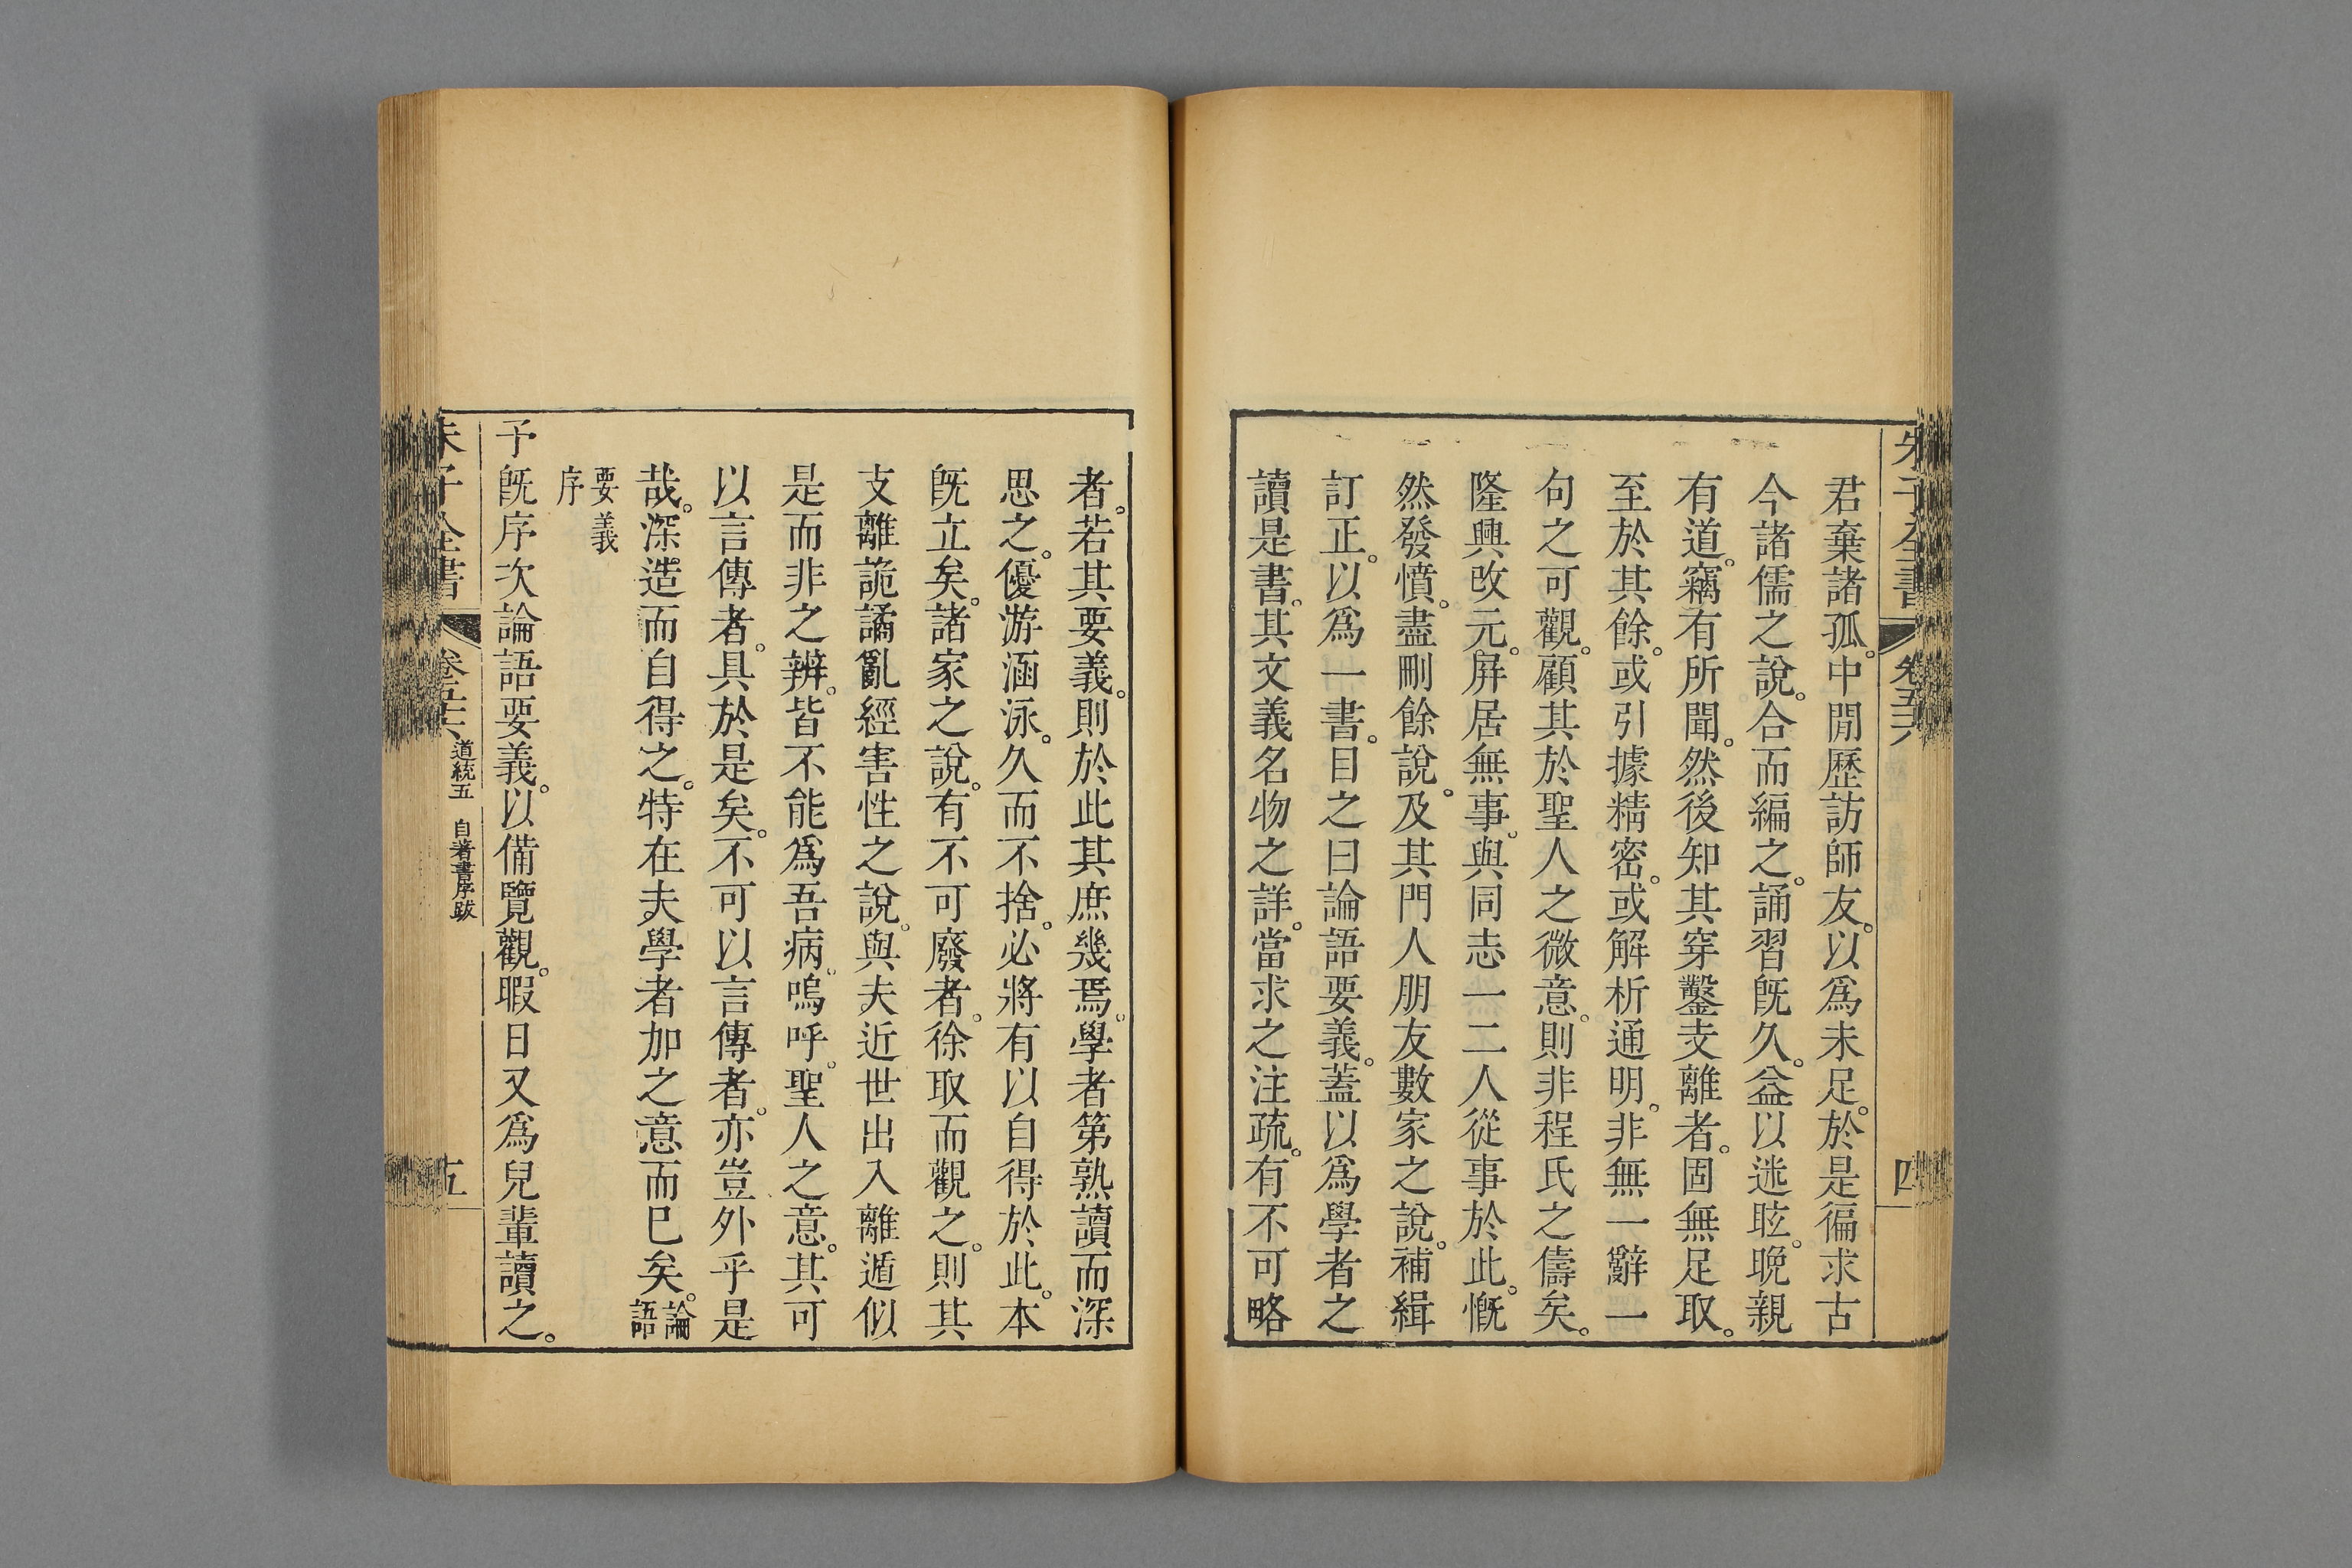 朱子全書 卷五十六 四
君棄諸孤。中閒歷訪師友。以爲未足。於是徧求古
今諸儒之說。合而編之。誦習旣久。益以迷眩。晚親
有道。竊有所聞。然後知其穿鑿支離者。固無足取。
至於其餘。或引據精密。或解析通明。非無一辭一
句之可觀。顧其於聖人之微意。則非程氏之儔矣。
隆興改元。屏居無事。與同志一二人從事於此。慨
然發憤。盡刪餘說。及其門人朋友數家之說。補緝
訂正。以爲一書。目之曰論語要義。蓋以爲學者之
讀是書。其文義名物之詳。當求之注疏。有不可略
者。若其要義。則於此其庶幾焉。學者第熟讀而深
思之。優游涵泳。久而不捨。必將有以自得於此。本
旣立矣。諸家之說。有不可廢者。徐取而觀之。則其
支離詭譎亂經害性之說。與夫近世出入離遁似
是而非之辨。皆不能爲吾病。嗚呼。聖人之意。其可
以言傳者。具於是矣。不可以言傳者。亦豈外乎是
哉。深造而自得之。特在夫學者加之意而已矣。論語
要義
序
予旣序次論語要義。以備覽觀。暇日又爲兒輩讀之。
朱子全書 卷五十六 道統五 自著書序跋 五